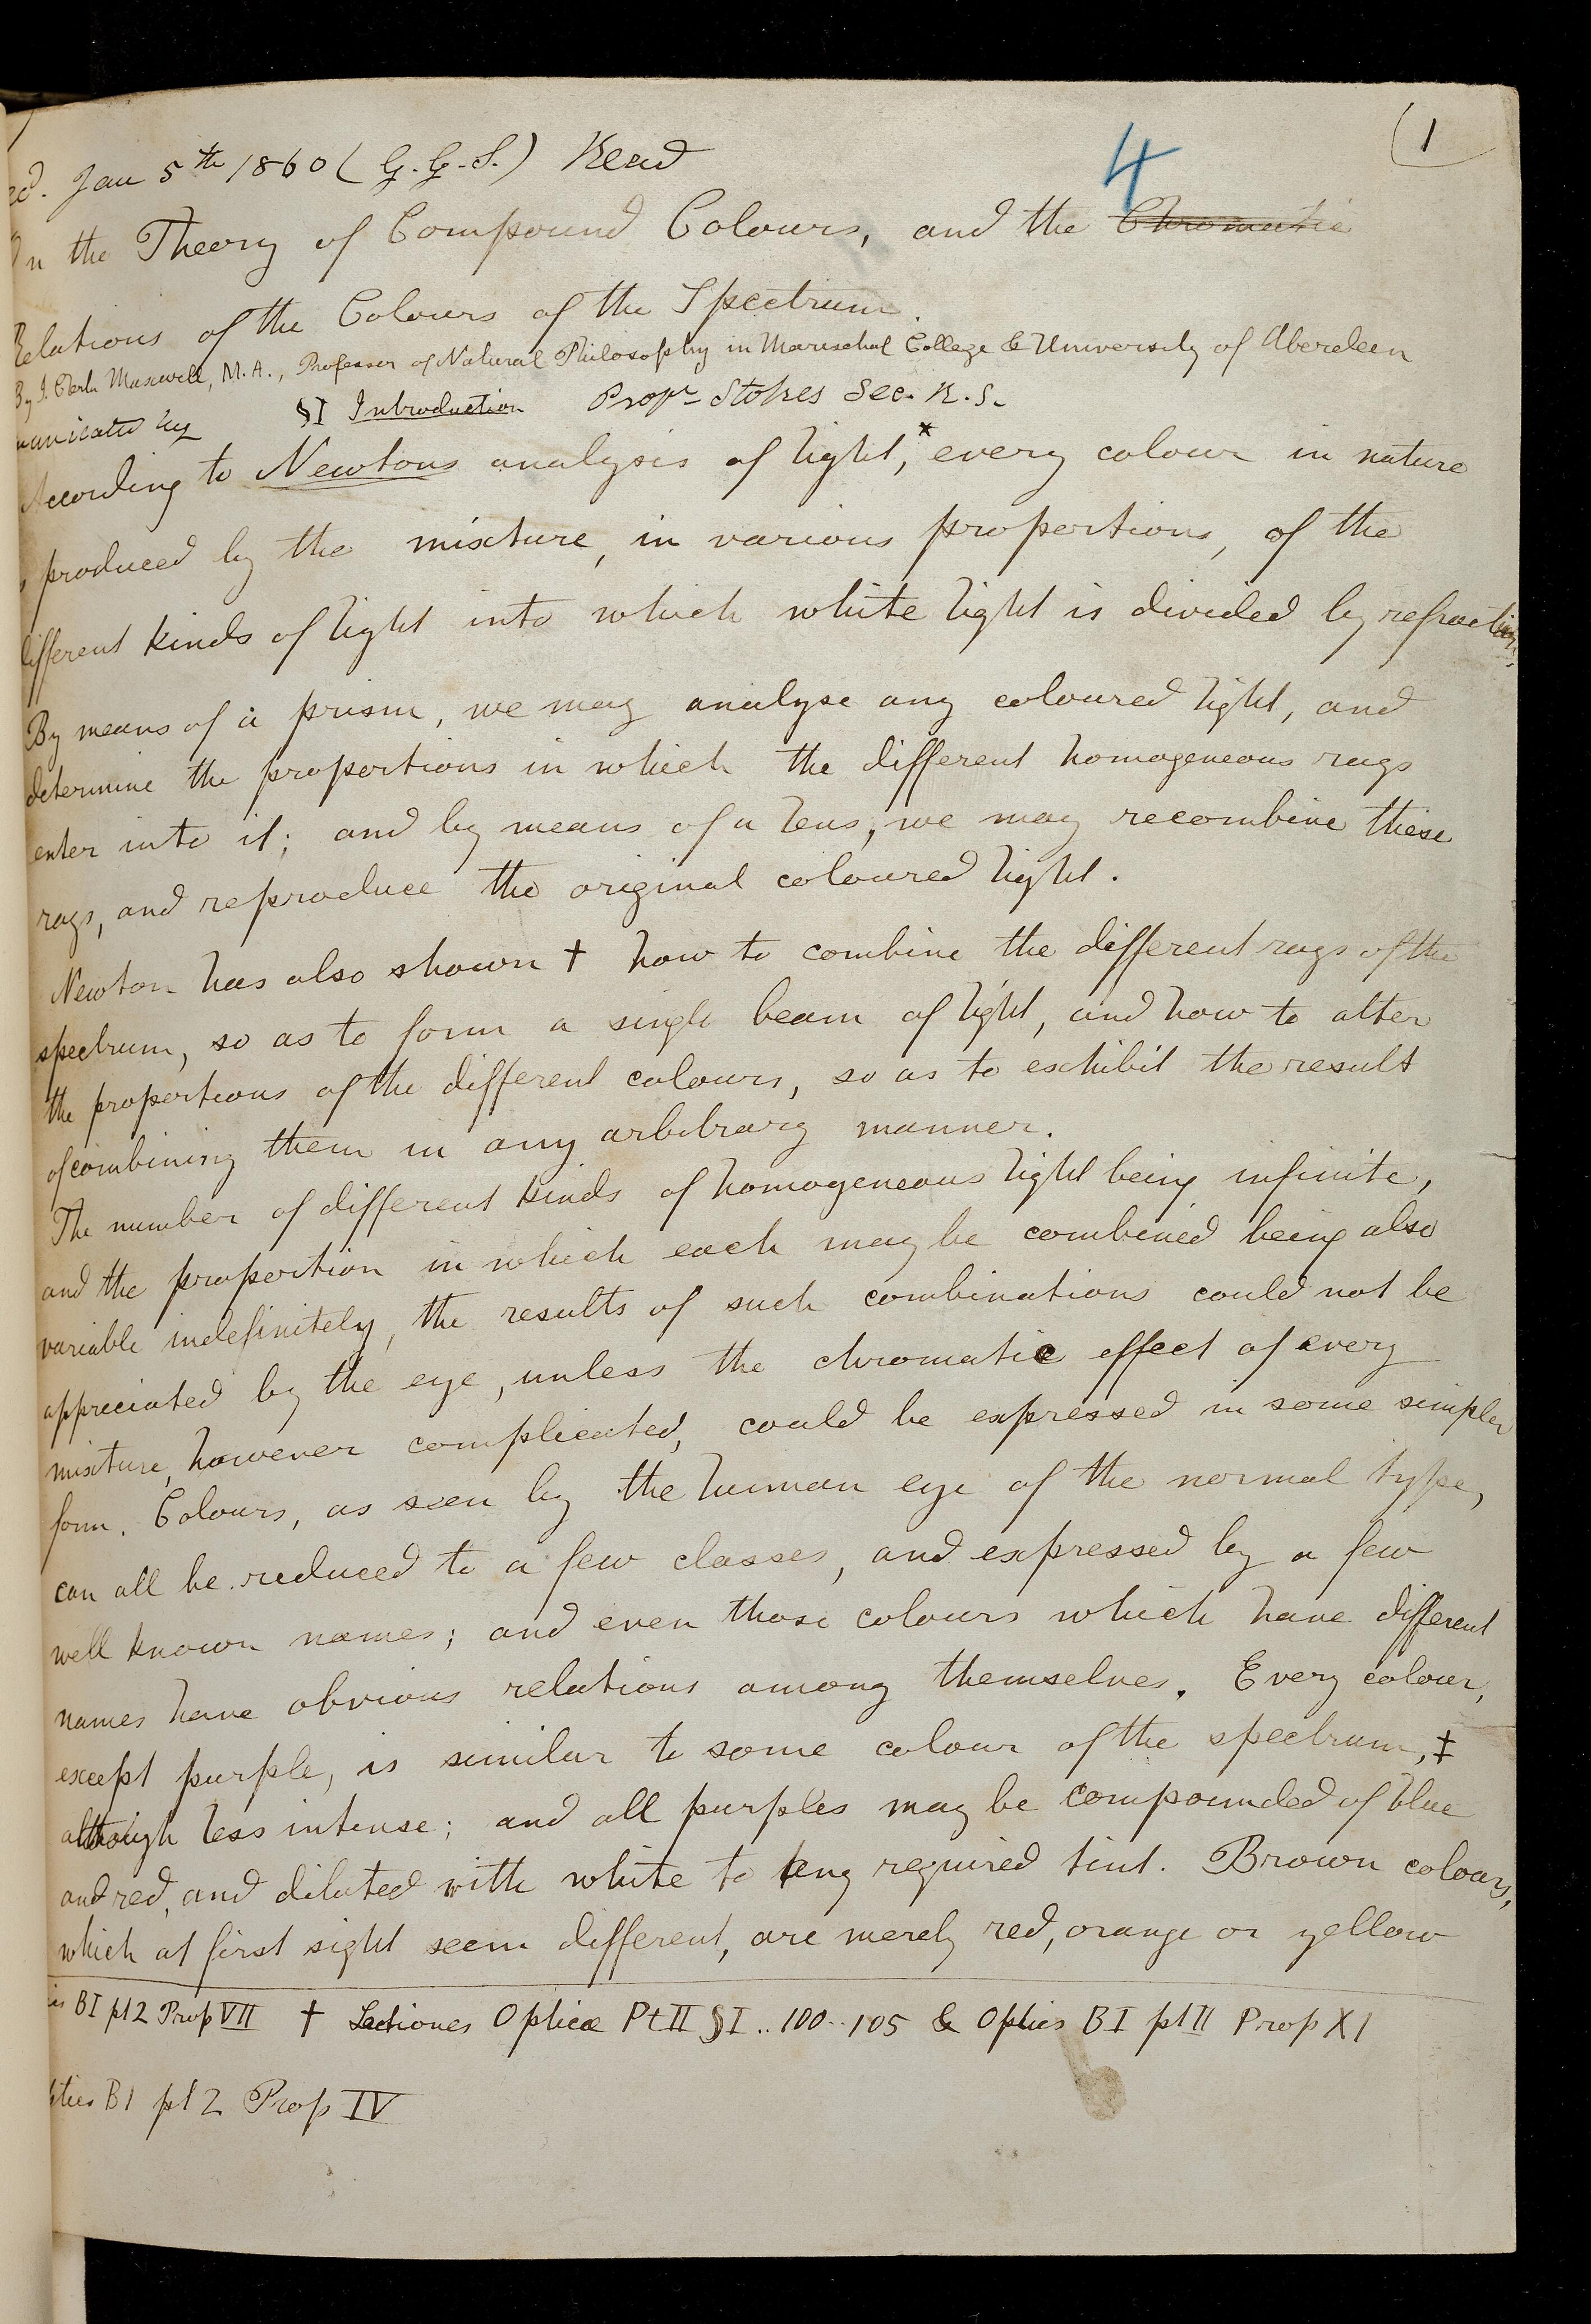 Jan 5th 1860 (G.G.S.) Read
4
(1
On the Theory of Compound Colours, and the Chromatic
Relations of the Colours of the Spectrum.
By J. Clerk Maxwell, M.A., Professor of Natural Philosophy in Marischal College & University of Aberdeen
municated by Profr Stokes Sec. R.S.
§I Introduction
According to Newtons analysis of light,* every colour in nature
produced by the mixture, in various proportions, of the
different kinds of light into which white light is divided by refraction.
By means of a prism, we may analyse any coloured light, and
determine the proportions in which the different homogeneous rays
enter into it; and by means of a lens, we may recombine these
rays, and reproduce the original coloured light.
Newton has also shown † how to combine the different rays of the
spectrum, so as to form a single beam of light, and how to alter
the proportions of the different colours, so as to exhibit the result
of combining them in any arbitrary manner.
The number of different kinds of homogeneous light being infinite,
and the proportion in which each may be combined being also
variable indefinitely, the results of such combinations could not be
appreciated by the eye, unless the chromatic effect of every
mixture, however complicated, could be expressed in some simpler
form. Colours, as seen by the human eye of the normal type,
can all be reduced to a few classes, and expressed by a few
well known names; and even those colours which have different
names have obvious relations among themselves. Every colour,
except purple, is similar to some colour of the spectrum, ‡
although less intense; and all purples may be compounded of blue
and red, and diluted with white to any required tint. Brown colours,
which at first sight seem different, are merely red, orange or yellow
BI pt2 Prop VII † Lectiones Opticæ Pt II §I .. 100..105 & Optics BI pt II Prop XI
ptics B1 pt 2 Prop IV